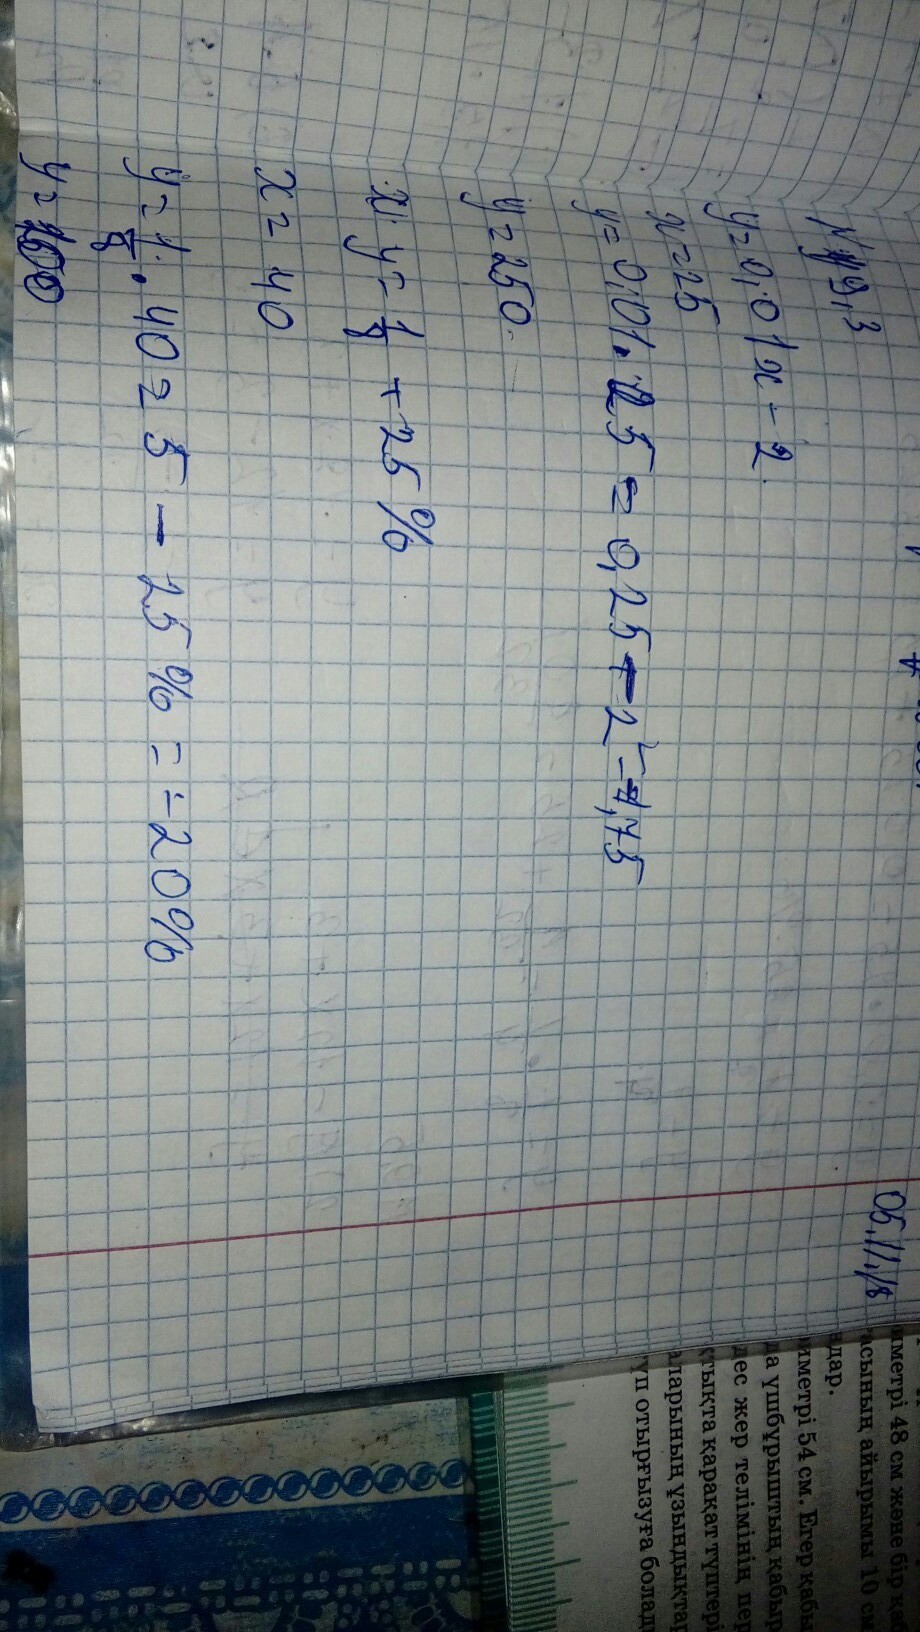 05.11.18
№ 19,3
y=0,01x-2
x=25
y=0,01·25=0,25-2=-1,75
y=250
x y=1/8 +25%
x=40
y=1/8·40=5-25%=-20%
y=
метрі 48 см және бір қа
сының айырымы 10 см
дар.
иметрі 54 см. Егер қабы
да үшбұрыштың қабыр
дес жер телімінің пер
қтықта қарақат түптері
аларының ұзындықтар
түп отырғызуға болад